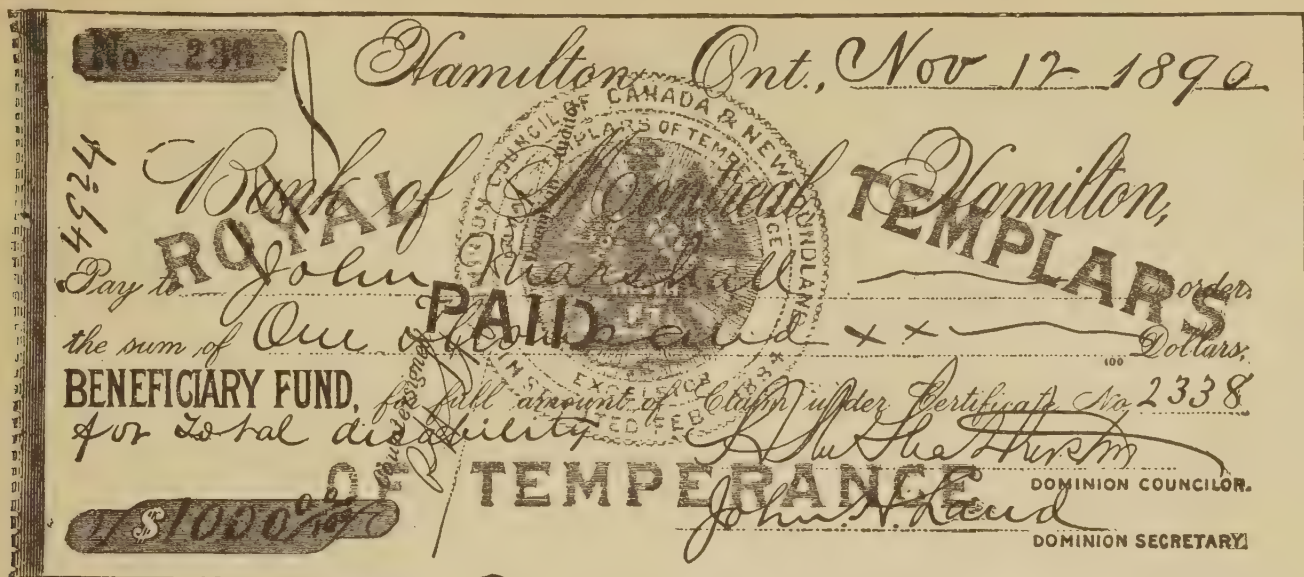 No 236
Hamilton, Ont., Nov 12 1890
4924
Bank of Montreal Hamilton,
ROYAL TEMPLARS
Pay to John Marshall or order
the sum of One thousand x x 100 Dollars,
PAID
BENEFICIARY FUND, for full amount of Claim under Certificate No 2338
for Total disability
OF TEMPERANCE
DOMINION COUNCILOR.
$1000 00/100
John H. Land
DOMINION SECRETARY
Countersigned
DOMINION COUNCIL OF CANADA & NEWFOUNDLAND
ROYAL TEMPLARS OF TEMPERANCE
EXCELSIOR
INSTITUTED FEB